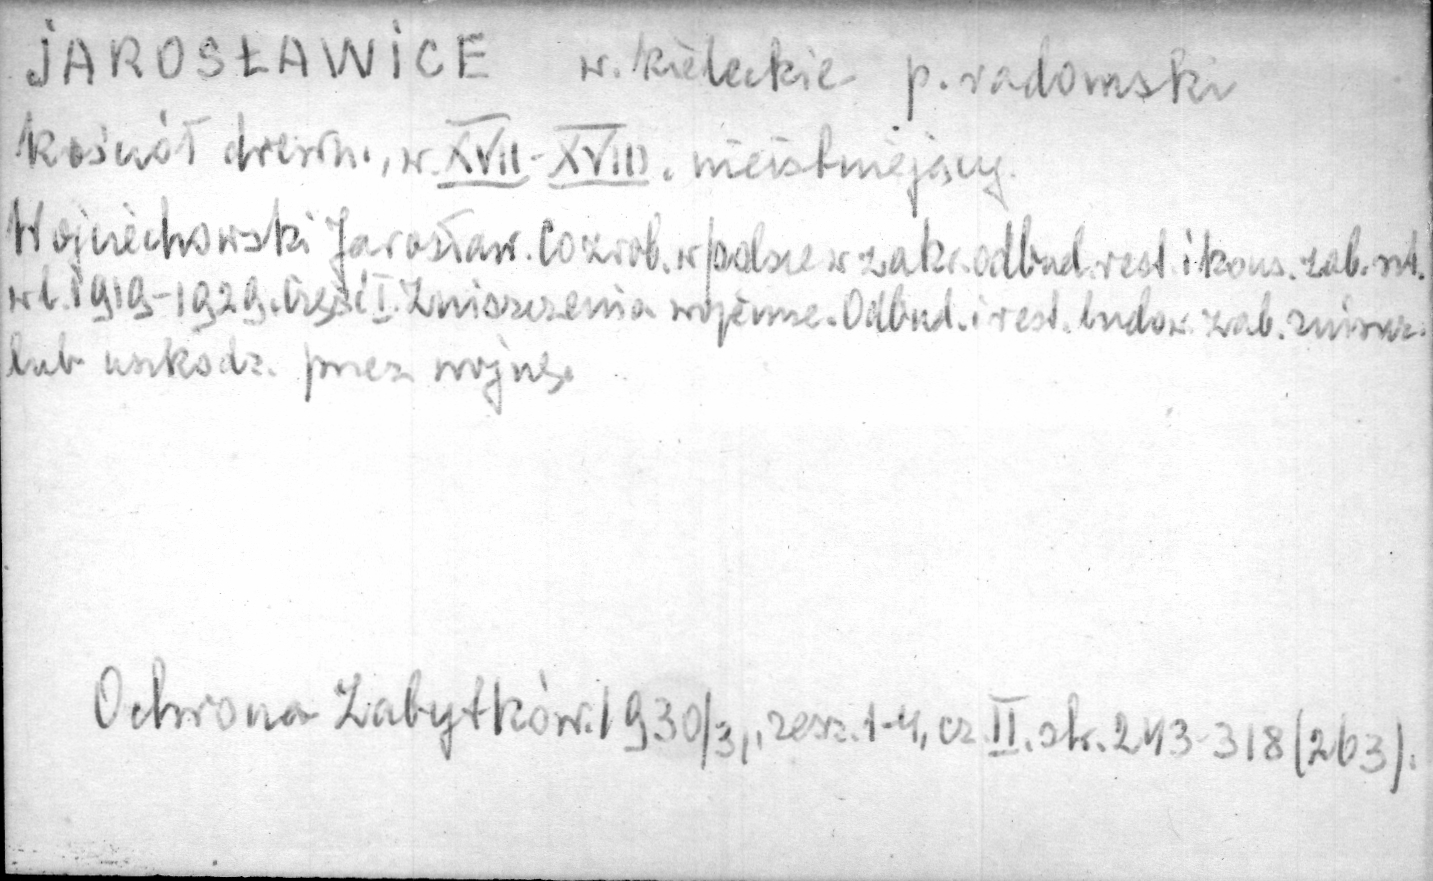 JAROSŁAWICE w. kieleckie p. radomski
Kościół drewn., w. XVII-XVIII. nieistniejący.
Wojciechowski Jarosław. Co zrob. w Polsce w zakr. odbud. rest. i kons. zab. szt.
w l. 1919-1929. Część I. Zniszczenia wojenne. Odbud. i rest. budow. zab. zniszcz.
lub uszkodz. przez wojnę.
Ochrona Zabytków. 1930/31, zesz. 1-4, cz. II. str. 243-318 (263).